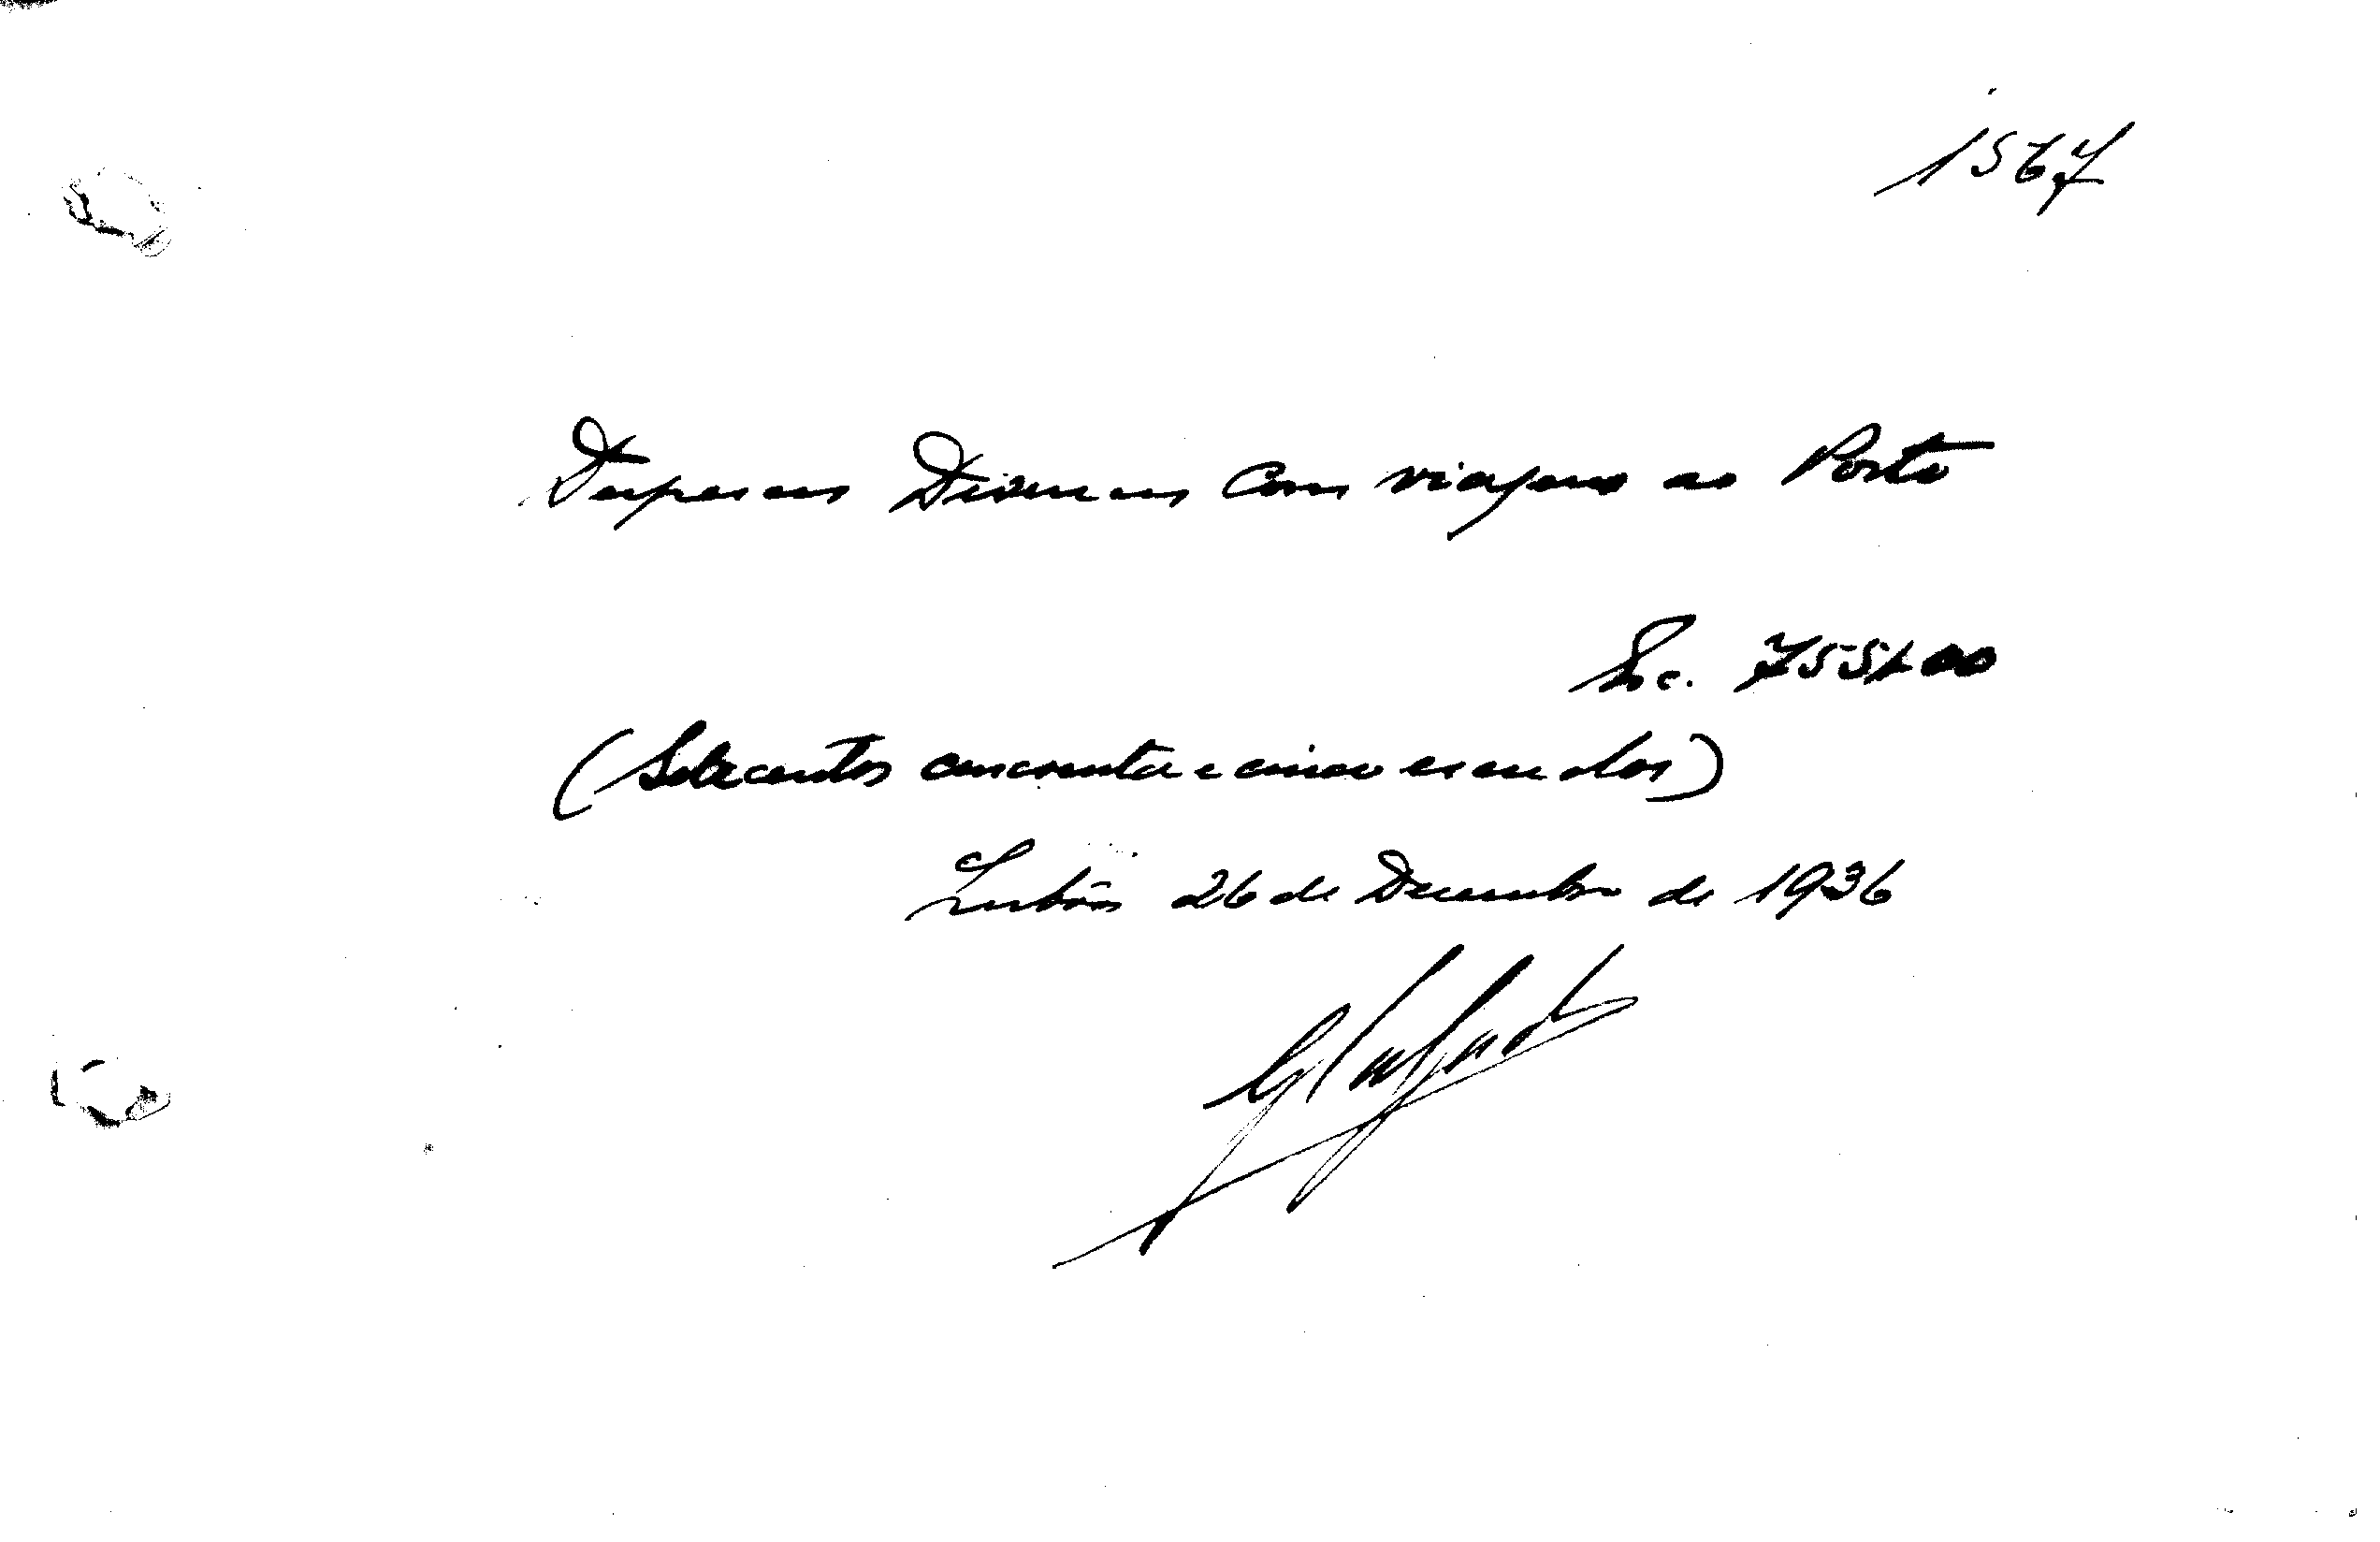 1567
Despesas Diversas com viagens ao Porto
Esc. 755$00
(Setecentos cincoenta e cinco escudos)
Lisbôa 26 de Dezembro de 1936